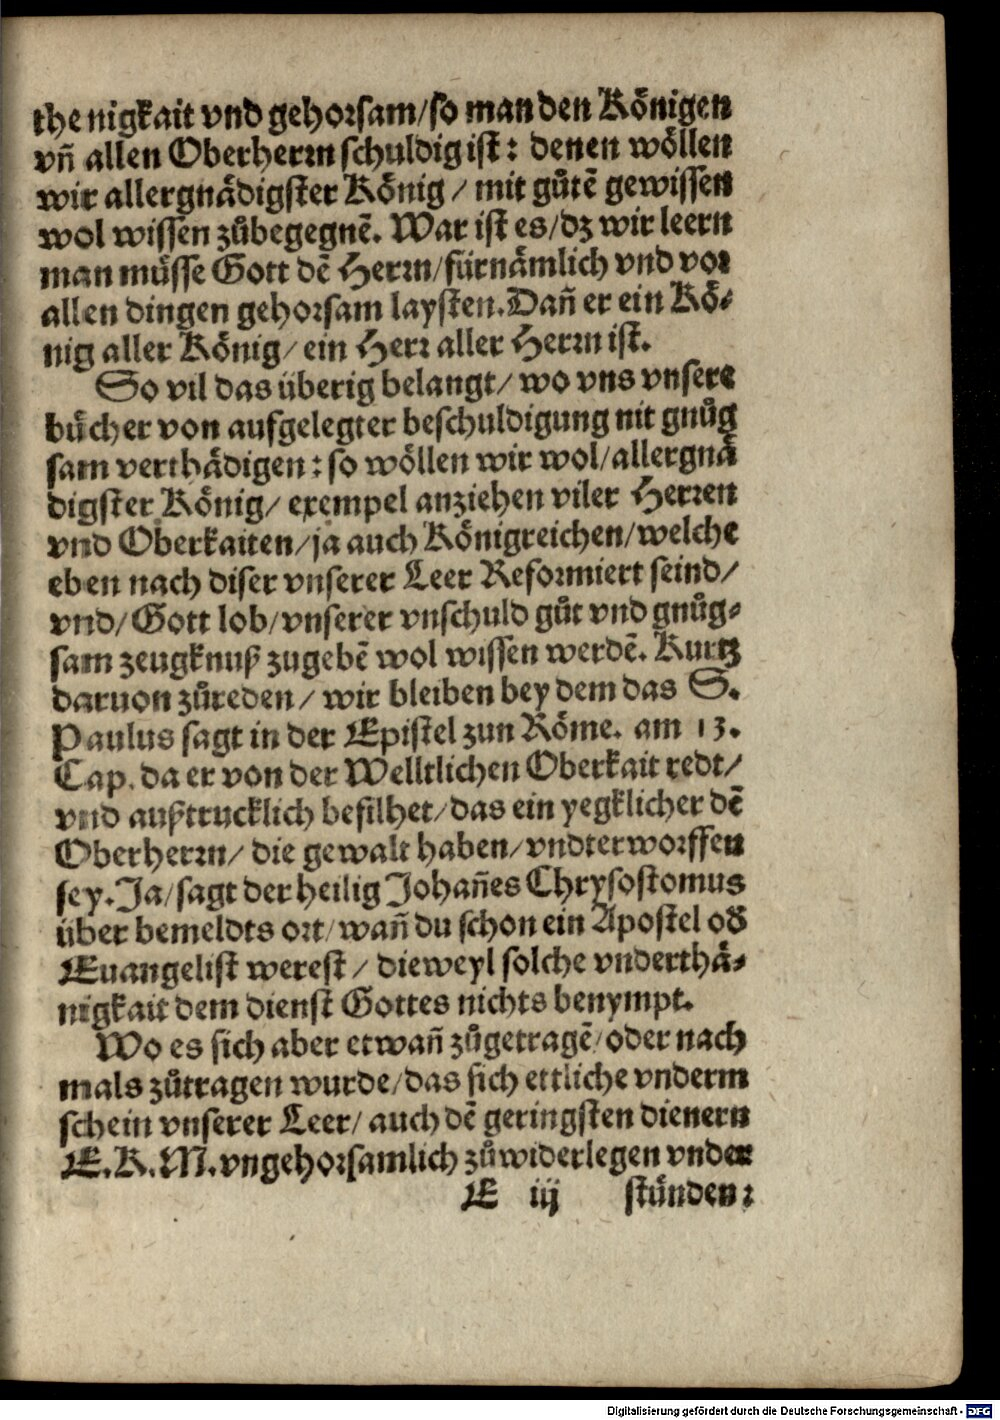 the nigkait vnd gehorsam/ so man den Königen
vn̄ allen Oberherrn schuldig ist: denen wöllen
wir allergnädigster König / mit gůtē gewissen
wol wissen zůbegegnē. War ist es/ dz wir leern
man müsse Gott dē Herrn/ fürnämlich vnd vor
allen dingen gehorsam laysten. Dan̄ er ein Kö-
nig aller König/ ein Herr aller Herrn ist.
So vil das überig belangt/ wo vns vnsere
bücher von aufgelegter beschuldigung nit gnůg
sam verthädigen: so wöllen wir wol/ allergnä
digster König/ exempel anziehen viler Herren
vnd Oberkaiten/ ja auch Königreichen/ welche
eben nach diser vnserer Leer Reformiert seind/
vnd/ Gott lob/ vnserer vnschuld gůt vnd gnůg-
sam zeugknuß zugebē wol wissen werdē. Kurtz
daruon zůreden/ wir bleiben bey dem das S.
Paulus sagt in der Epistel zun Röme. am 13.
Cap. da er von der Welltlichen Oberkait redt/
vnd außtrucklich befilhet/ das ein yegklicher dē
Oberherrn/ die gewalt haben/ vndterworffen
sey. Ja/ sagt der heilig Johan̄es Chrysostomus
über bemeldts ort/ wan̄ du schon ein Apostel od̄
Euangelist werest/ dieweyl solche vnderthä-
nigkait dem dienst Gottes nichts benympt.
Wo es sich aber etwan̄ zůgetragē/ oder nach
mals zůtragen wurde/ das sich ettliche vnderm
schein vnserer Leer/ auch dē geringsten dienern
E. K. M. vngehorsamlich zůwiderlegen vnder
E iij stünden:
Digitalisierung gefördert durch die Deutsche Forschungsgemeinschaft - DFG